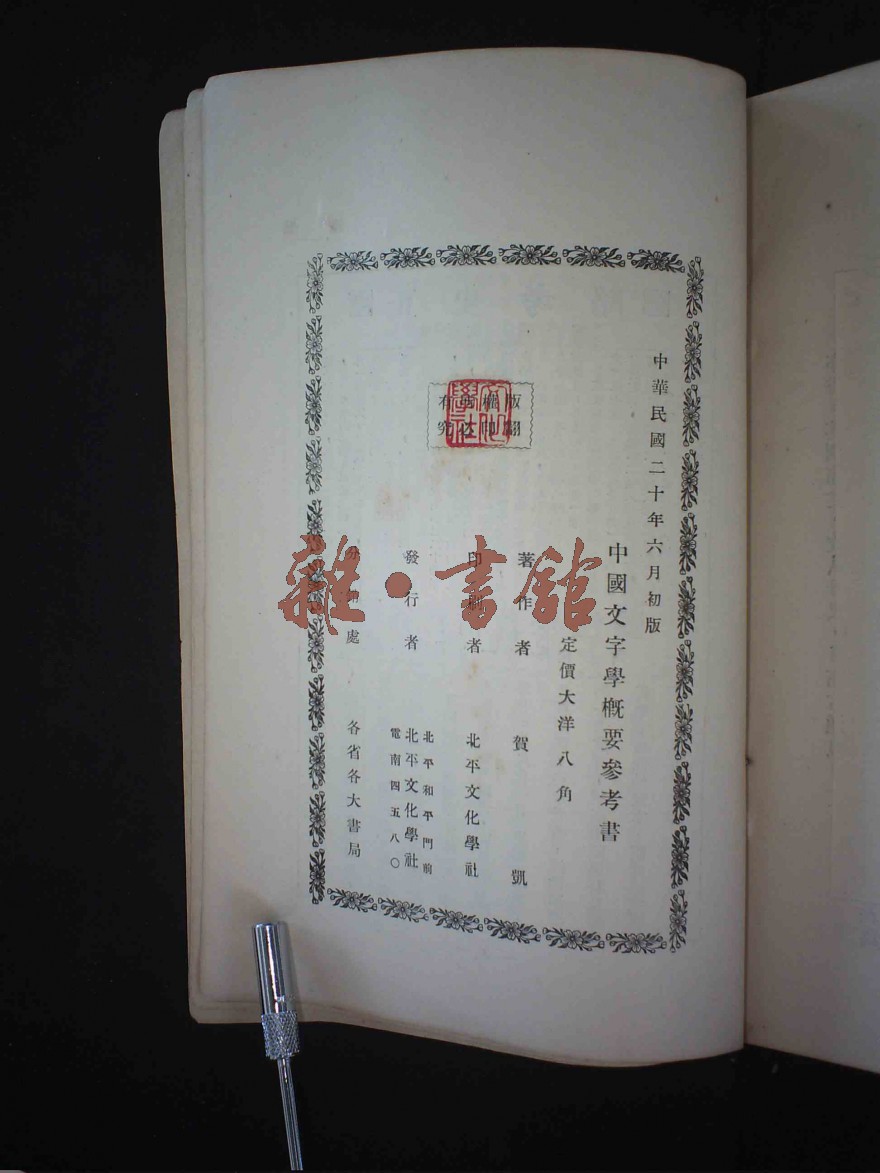 中華民國二十年六月初版
中國文字學概要參考書
定價大洋八角
著作者 賀凱
印刷者 北平文化學社
發行者 北平和平門前
北平文化學社
電南四五八〇
處 各省各大書局
版權所有
翻印必究
文化學社
雜·書館